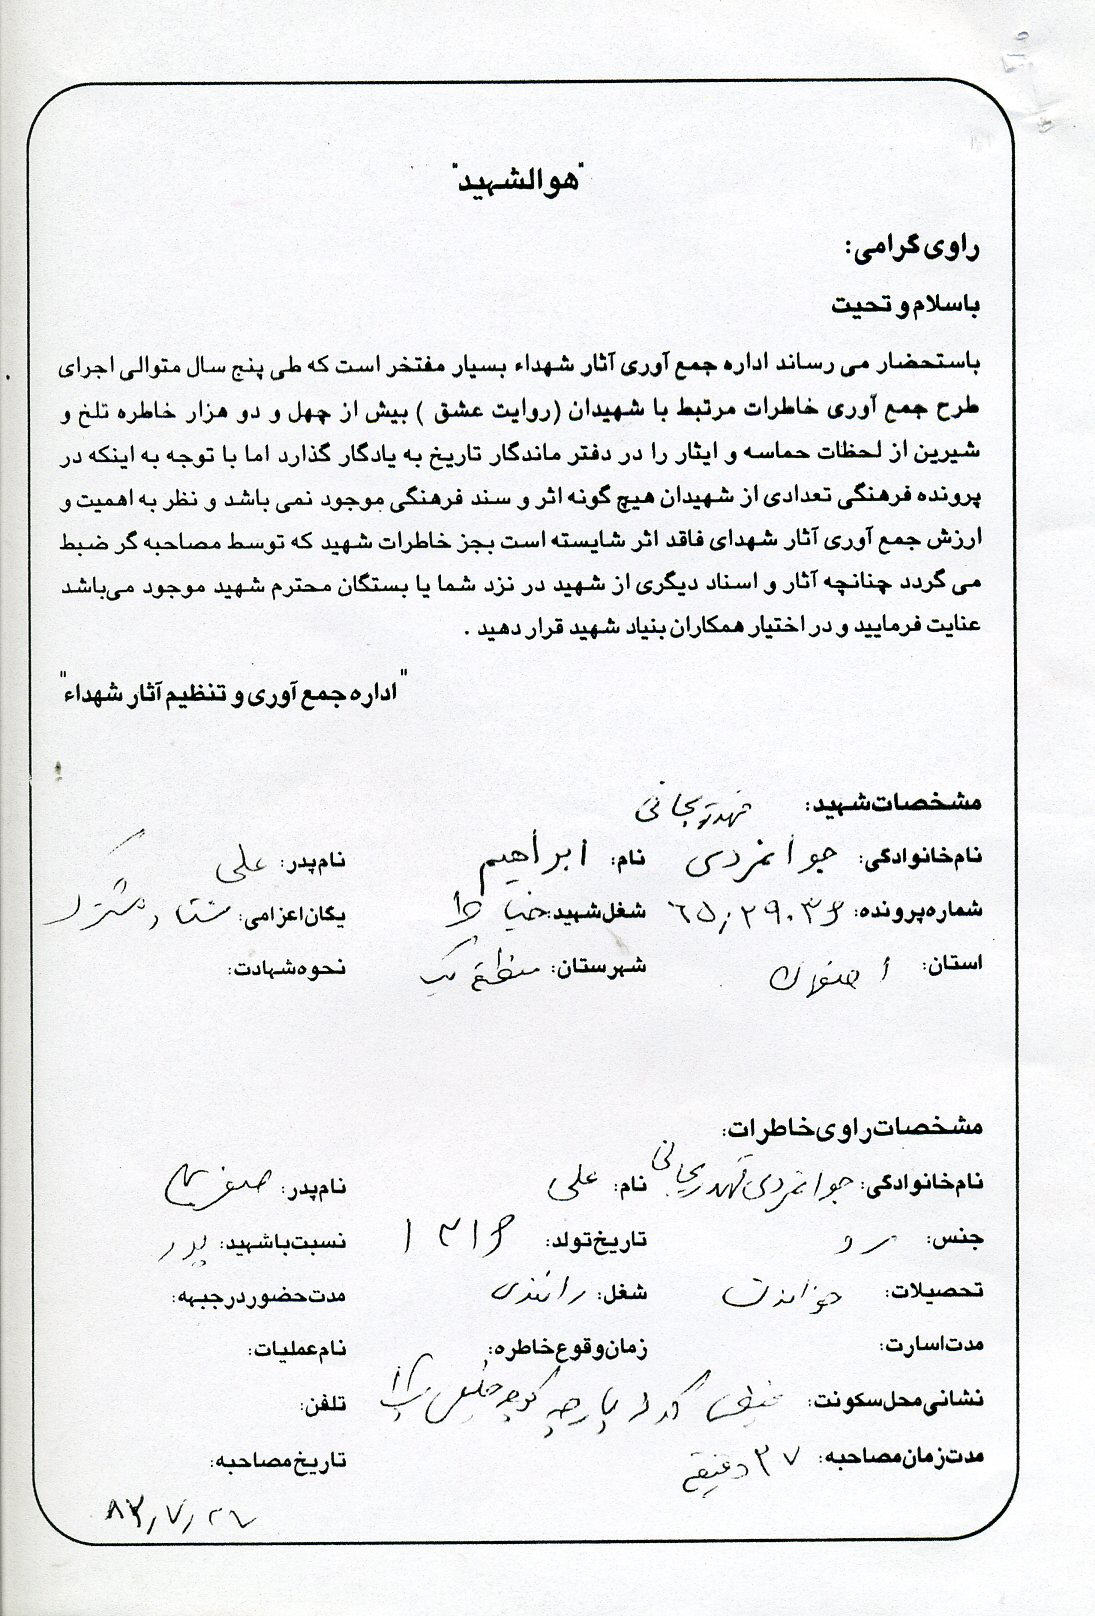 "هوالشهید"
راوی گرامی:
باسلام و تحیت
باستحضار می رساند اداره جمع آوری آثار شهداء بسیار مفتخر است که طی پنج سال متوالی اجرای
طرح جمع آوری خاطرات مرتبط با شهیدان (روایت عشق ) بیش از چهل و دو هزار خاطره تلخ و
شیرین از لحظات حماسه و ایثار را در دفتر ماندگار تاریخ به یادگار گذارد اما با توجه به اینکه در
پرونده فرهنگی تعدادی از شهیدان هیچ گونه اثر و سند فرهنگی موجود نمی باشد و نظر به اهمیت و
ارزش جمع آوری آثار شهدای فاقد اثر شایسته است بجز خاطرات شهید که توسط مصاحبه گر ضبط
می گردد چنانچه آثار و اسناد دیگری از شهید در نزد شما یا بستگان محترم شهید موجود می‌باشد
عنایت فرمایید و در اختیار همکاران بنیاد شهید قرار دهید .
"اداره جمع آوری و تنظیم آثار شهداء"
مشخصات شهید:
قهدریجانی
نام خانوادگی: جوانمردی نام: ابراهیم نام پدر: علی
شماره پرونده: ۶۵،۲۹۰۳۶ شغل شهید: یگان اعزامی: ستاد مشترک
استان: اصفهان شهرستان: منطقه یک نحوه شهادت:
مشخصات راوی خاطرات:
نام خانوادگی: جوانمردی قهدریجانی نام: علی نام پدر:
جنس: تاریخ تولد: ۱۳۱۶ نسبت با شهید: پدر
تحصیلات: خواندن شغل: رانندگی مدت حضور در جبهه:
مدت اسارت: زمان وقوع خاطره: نام عملیات:
نشانی محل سکونت: کوچه تلفن:
مدت زمان مصاحبه: ۳۷ دقیقه تاریخ مصاحبه:
۸۳٫۷٫۲۷